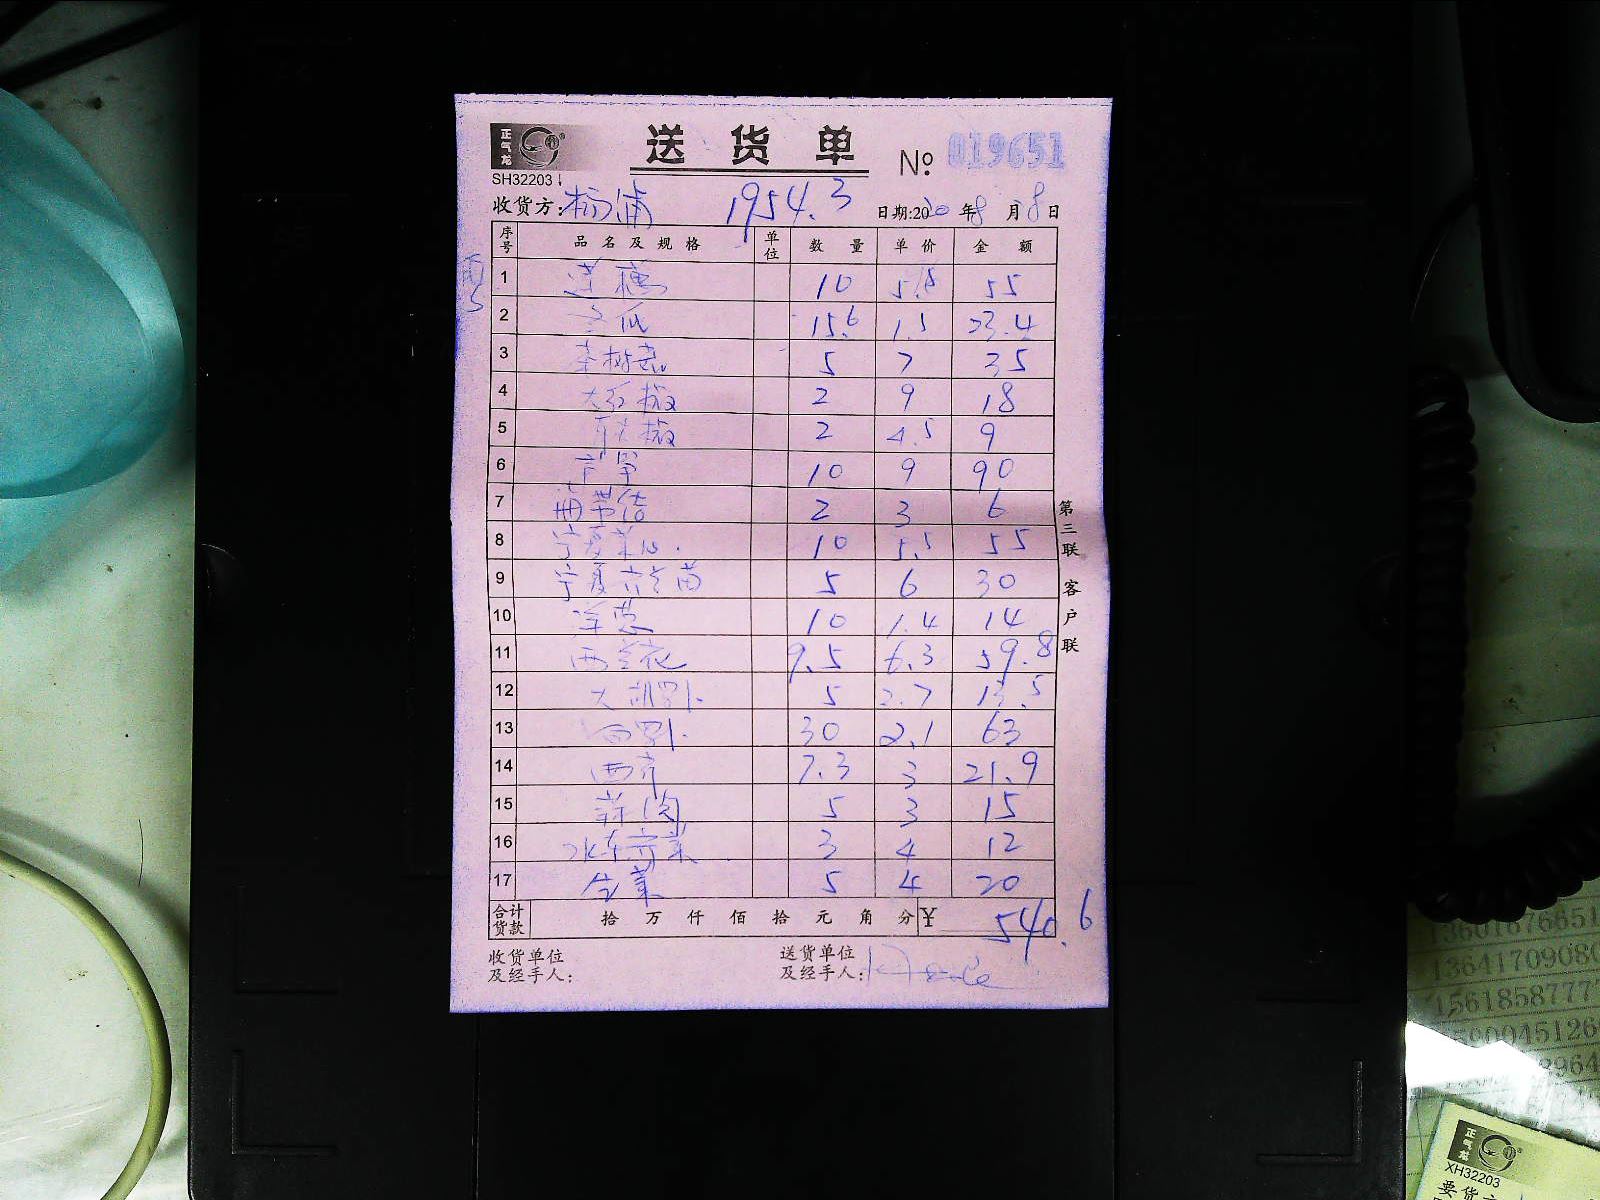 正气龙
SH32203
送货单 № 019651
收货方: 杨浦 1954.3 日期:2020年8月8日
序号 品名及规格 单位 数量 单价 金额
1 莲藕 10 55
2 冬瓜 15.6 1.5 23.4
3 茶树菇 5 7 35
4 大红椒 2 9 18
5 2 4.5 9
6 10 9 90
7 海带结 2 3 6
8 宁夏菜心 10 5.5 55
9 宁夏 苗 5 6 30
10 洋葱 10 1.4 14
11 西兰花 9.5 6.3 59.8
12 大胡萝卜 5 2.7 13.5
13 白萝卜 30 2.1 63
14 西芹 7.3 3 21.9
15 蒜肉 5 3 15
16 3 4 12
17 生菜 5 4 20
合计货款 拾 万 仟 佰 拾 元 角 分 ¥ 540.6
收货单位 送货单位
及经手人: 及经手人:
第三联 客户联
13641709080
正气龙
XH32203
要货